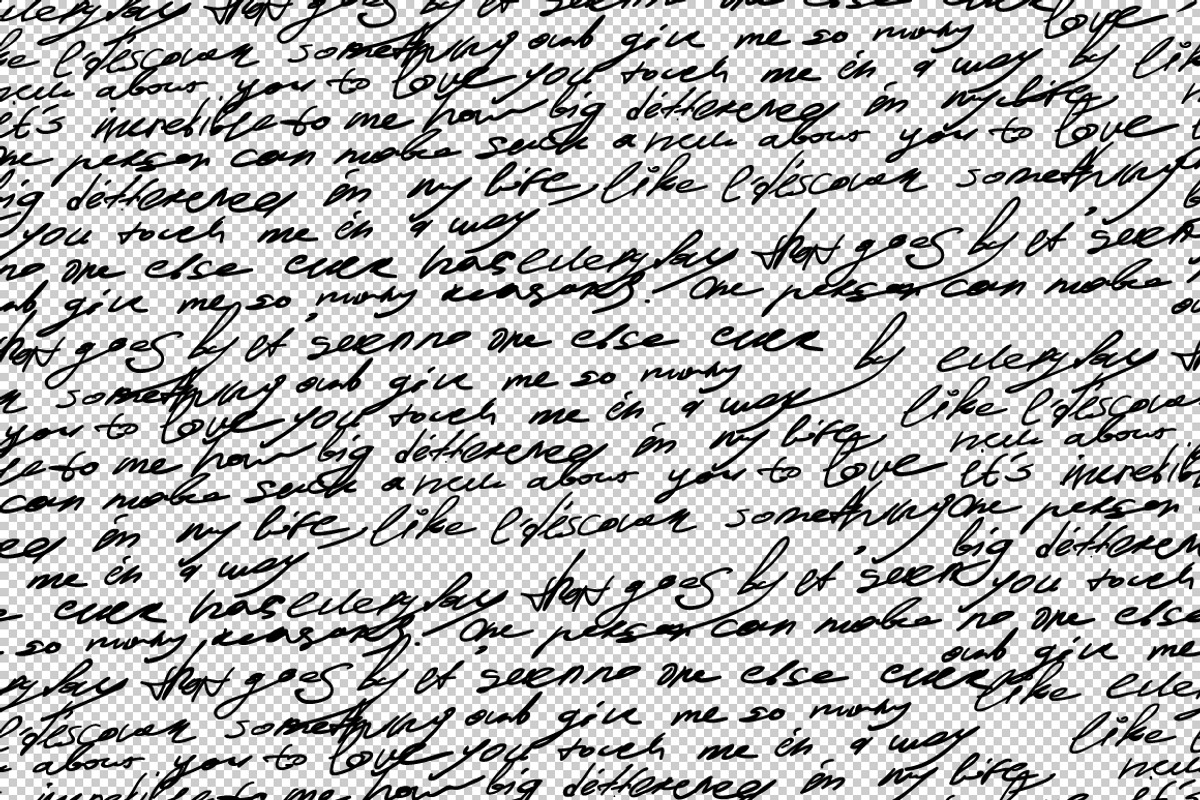 every day that goes by it seem no one else ever love
like I discover something and give me so many love
new about you to love you touch me in a way by like
it's incredible to me how big difference in my life
One person can make such a new about you to love
big difference in my life, like I discover something
you touch me in a way
no one else ever has every day that goes by it seem
and give me so many reasons. One person can make
that goes by it seem no one else ever
something and give me so many by every day
you to love you touch me in a way like I discover
to me how big difference in my life new about
can make such a new about you to love it's incredible
in my life, like I discover something One person
me in a way big difference
ever has every day that goes by it seem you touch
so many reasons. One person can make no one else
every day that goes by it seem no one else ever and give me
I discover something and give me so many like every
about you to love you touch me in a way like
incredible to me how big difference in my life new